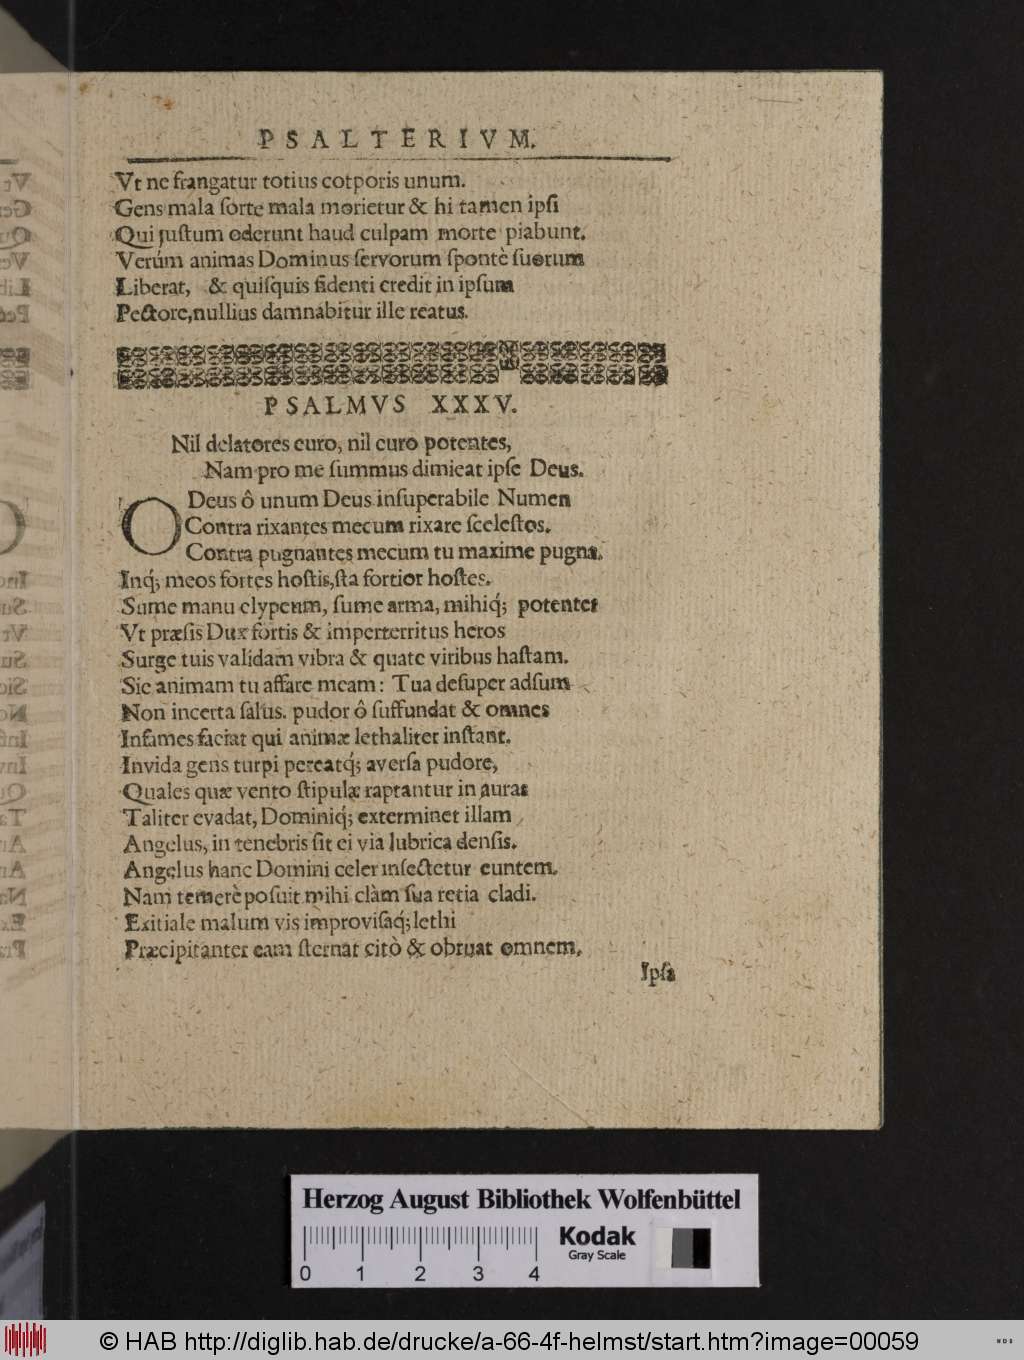 PSALTERIVM.
Vt ne frangatur totius cotporis unum.
Gens mala ſorte mala morietur & hi tamen ipſi
Qui juſtum oderunt haud culpam morte piabunt.
Verúm animas Dominus ſervorum ſpontè ſuorum
Liberat, & quiſquis fidenti credit in ipſum
Pectore, nullius damnabitur ille reatus.
PSALMVS XXXV.
Nil delatores curo, nil curo potentes,
Nam pro me ſummus dimicat ipſe Deus.
O Deus ô unum Deus inſuperabile Numen
Contra rixantes mecum rixare ſceleſtos.
Contra pugnantes mecum tu maxime pugna.
Inq́; meos fortes hoſtis, ſta fortior hoſtes.
Sume manu clypeum, ſume arma, mihiq́; potenter
Vt præſis Dux fortis & imperterritus heros
Surge tuis validam vibra & quate viribus haſtam.
Sic animam tu affare meam: Tua deſuper adſum
Non incerta ſalus. pudor ô ſuffundat & omnes
Infames faciat qui animæ lethaliter inſtant.
Invida gens turpi pereatq́; averſa pudore,
Quales quæ vento ſtipulæ raptantur in auras
Taliter evadat, Dominiq́; exterminet illam
Angelus, in tenebris ſit ei via lubrica denſis.
Angelus hanc Domini celer inſectetur euntem.
Nam temerè poſuit mihi clàm ſua retia cladi.
Exitiale malum vis improviſaq́; lethi
Præcipitanter eam ſternat citò & obruat omnem,
Ipſa
Herzog August Bibliothek Wolfenbüttel
Kodak
Gray Scale
0 1 2 3 4
© HAB http://diglib.hab.de/drucke/a-66-4f-helmst/start.htm?image=00059